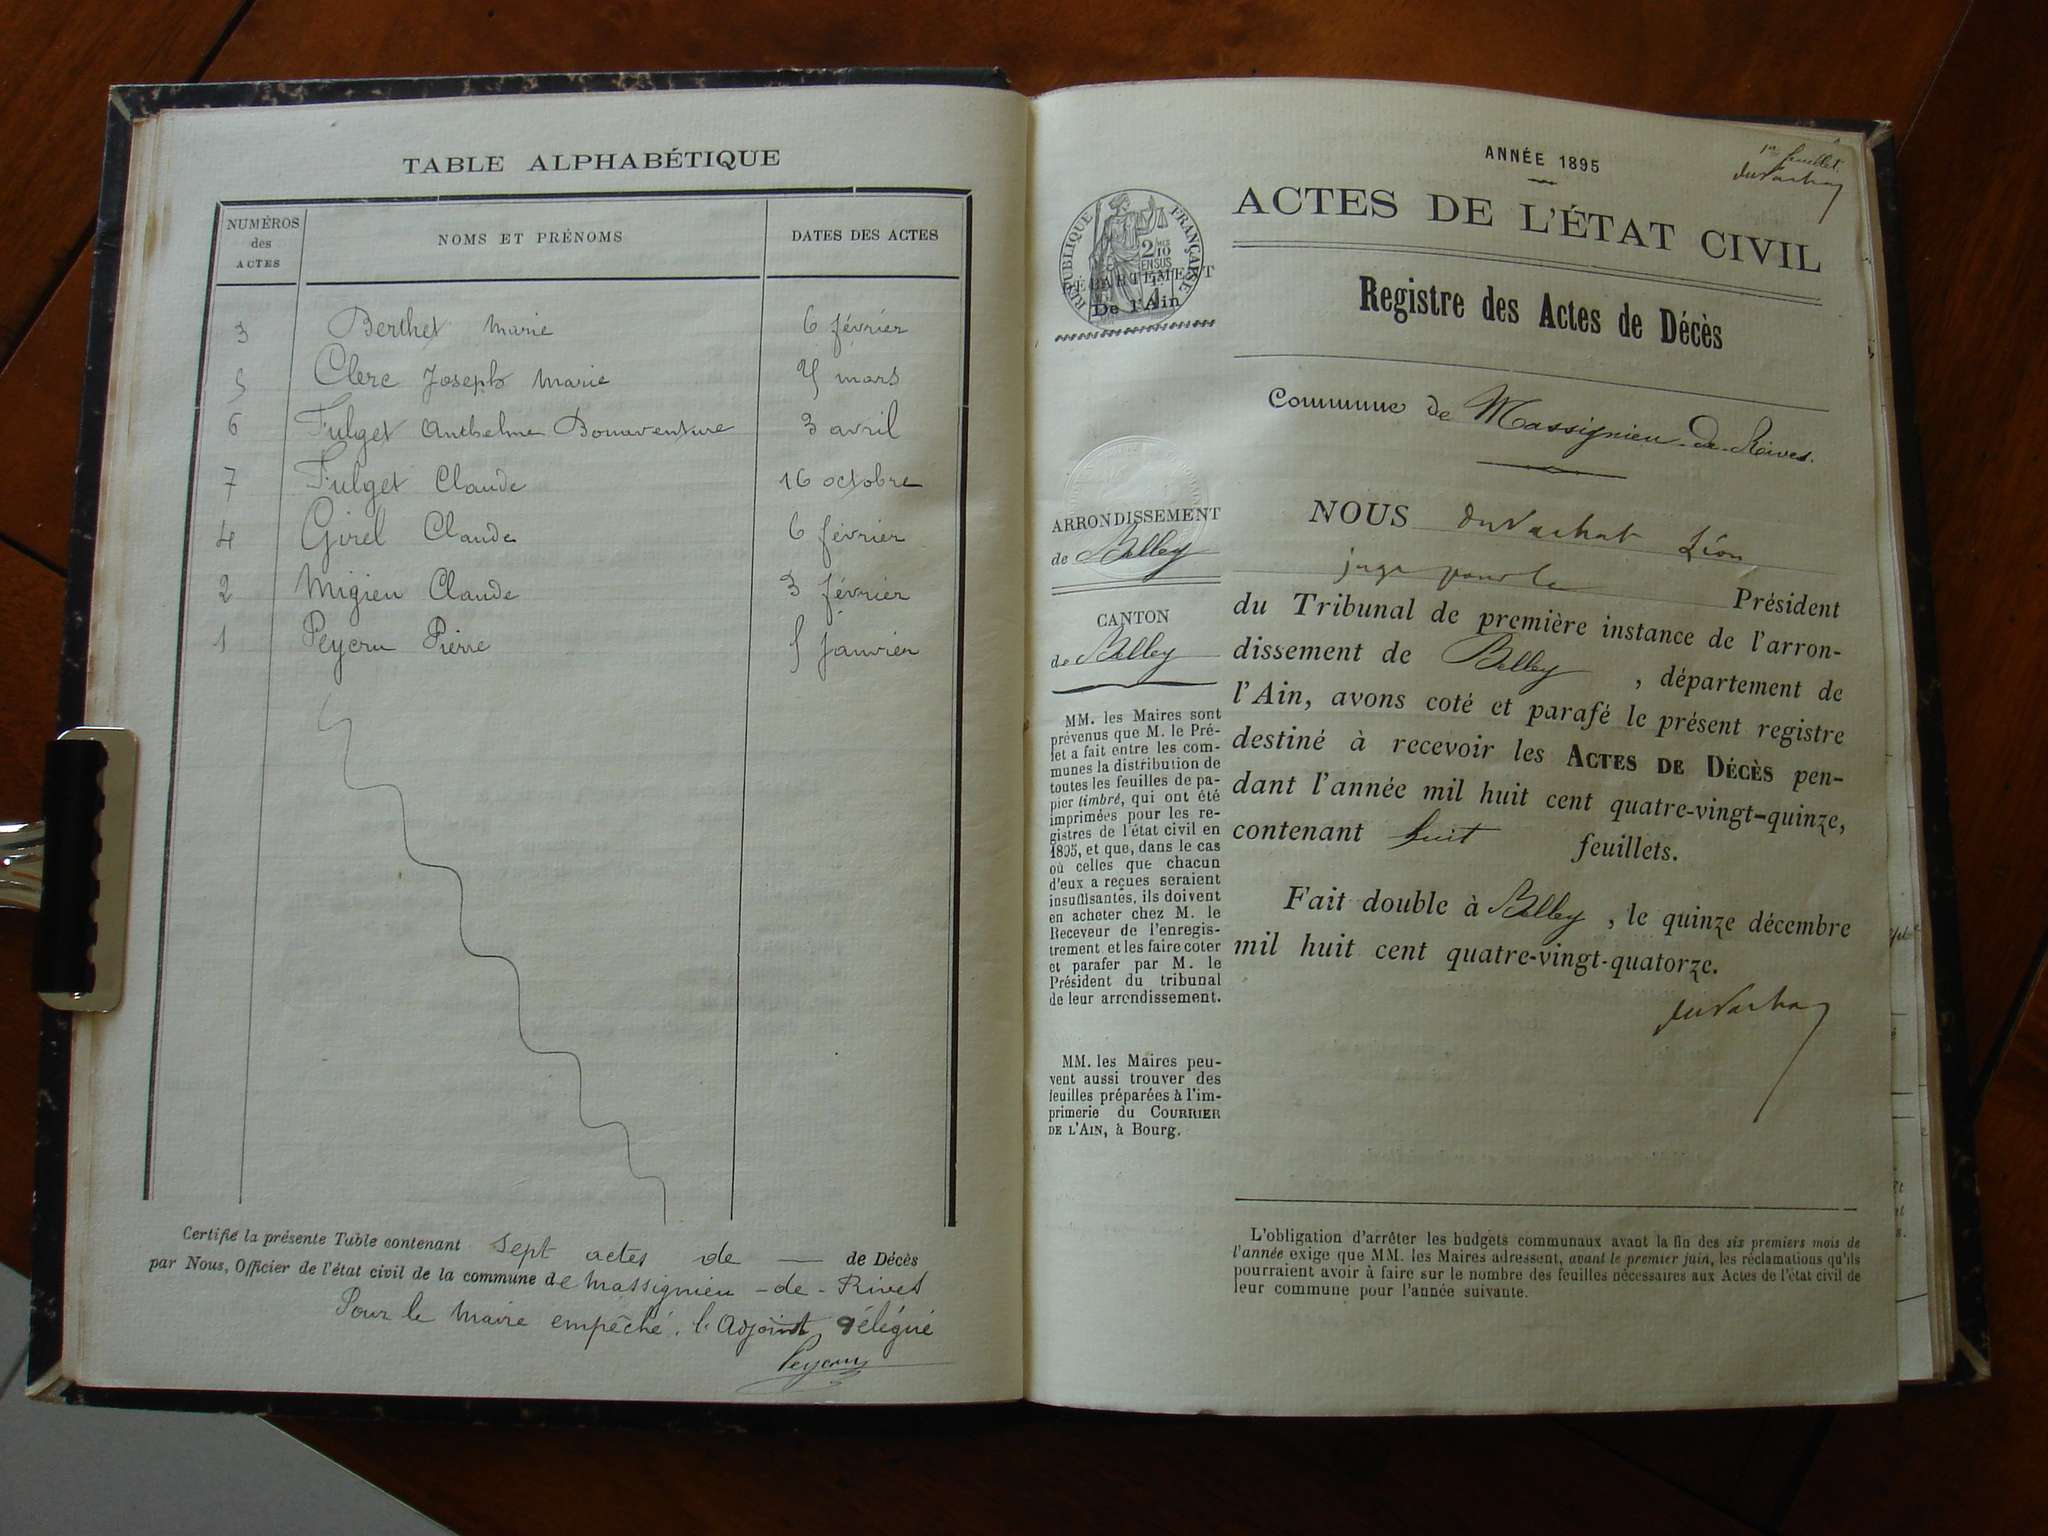 TABLE ALPHABÉTIQUE
NUMÉROS
des
ACTES
NOMS ET PRÉNOMS
DATES DES ACTES
3 Berthet Marie 6 février
5 Clerc Joseph Marie mars
6 Fulget Anthelme Bonaventure 3 avril
7 Fulget Claude 16 octobre
4 Girel Claude 6 février
2 Migieu Claude 3 février
1 Peycru Pierre 5 janvier
Certifié la présente Table contenant sept actes de — de Décès
par Nous, Officier de l'état civil de la commune de Massignieu-de-Rives
Pour le Maire empêché, l'Adjoint délégué
Peycru
1er feuillet
ANNÉE 1895
ACTES DE L'ÉTAT CIVIL
Registre des Actes de Décès
Commune de Massignieu-de-Rives.
RÉPUBLIQUE FRANÇAISE
2
10
EN SUS
DÉPARTEMENT
De l'Ain
ARRONDISSEMENT
de Belley
CANTON
de Belley
MM. les Maires sont
prévenus que M. le Pré-
fet a fait entre les com-
munes la distribution de
toutes les feuilles de pa-
pier timbré, qui ont été
imprimées pour les re-
gistres de l'état civil en
1895, et que, dans le cas
où celles que chacun
d'eux a reçues seraient
insuffisantes, ils doivent
en acheter chez M. le
Receveur de l'enregis-
trement et les faire coter
et parafer par M. le
Président du tribunal
de leur arrondissement.
MM. les Maires peu-
vent aussi trouver des
feuilles préparées à l'im-
primerie du COURRIER
DE L'AIN, à Bourg.
NOUS duVachat Léon
juge pour le Président
du Tribunal de première instance de l'arron-
dissement de Belley, département de
l'Ain, avons coté et parafé le présent registre
destiné à recevoir les ACTES DE DÉCÈS pen-
dant l'année mil huit cent quatre-vingt-quinze,
contenant huit feuillets.
Fait double à Belley, le quinze décembre
mil huit cent quatre-vingt-quatorze.
duVachat
L'obligation d'arrêter les budgets communaux avant la fin des six premiers mois de
l'année exige que MM. les Maires adressent, avant le premier juin, les réclamations qu'ils
pourraient avoir à faire sur le nombre des feuilles nécessaires aux Actes de l'état civil de
leur commune pour l'année suivante.